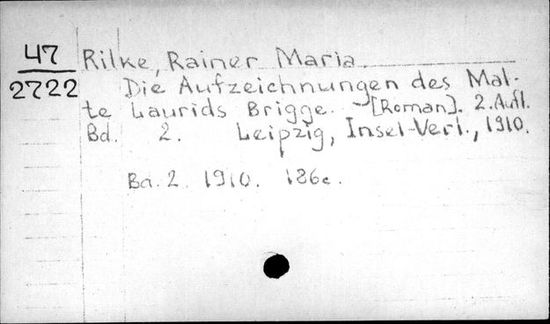 47
2722
Rilke, Rainer Maria.
Die Aufzeichnungen des Mal-
te Laurids Brigge. - [Roman]. 2. Aufl.
Bd. 2. Leipzig, Insel-Verl., 1910.
Bd. 2. 1910. 186c.